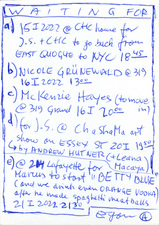 WAITING FOR
a) 15 I 2022 @ CHC home for
J.S. + CHC to go back from
EAST QUOGUE to NYC 18 45
b) NICOLE GRÜNEWALD @ 319
16 I 2022 1300
c) McKenzie Hayes (to move
in) @ 319 Grand 16 I 2000
d) for J.S. @ ChaShaMa art
show on ESSEX ST 20 I 1930
by ANDREW HUTNER (+ Leana
e) @ 214 Lafayette for Macaya)
to start "BETTY BLUE"
(and we drank even ORANGE VODKA)
after he made spaghetti meatballs
21 I 2022 2130